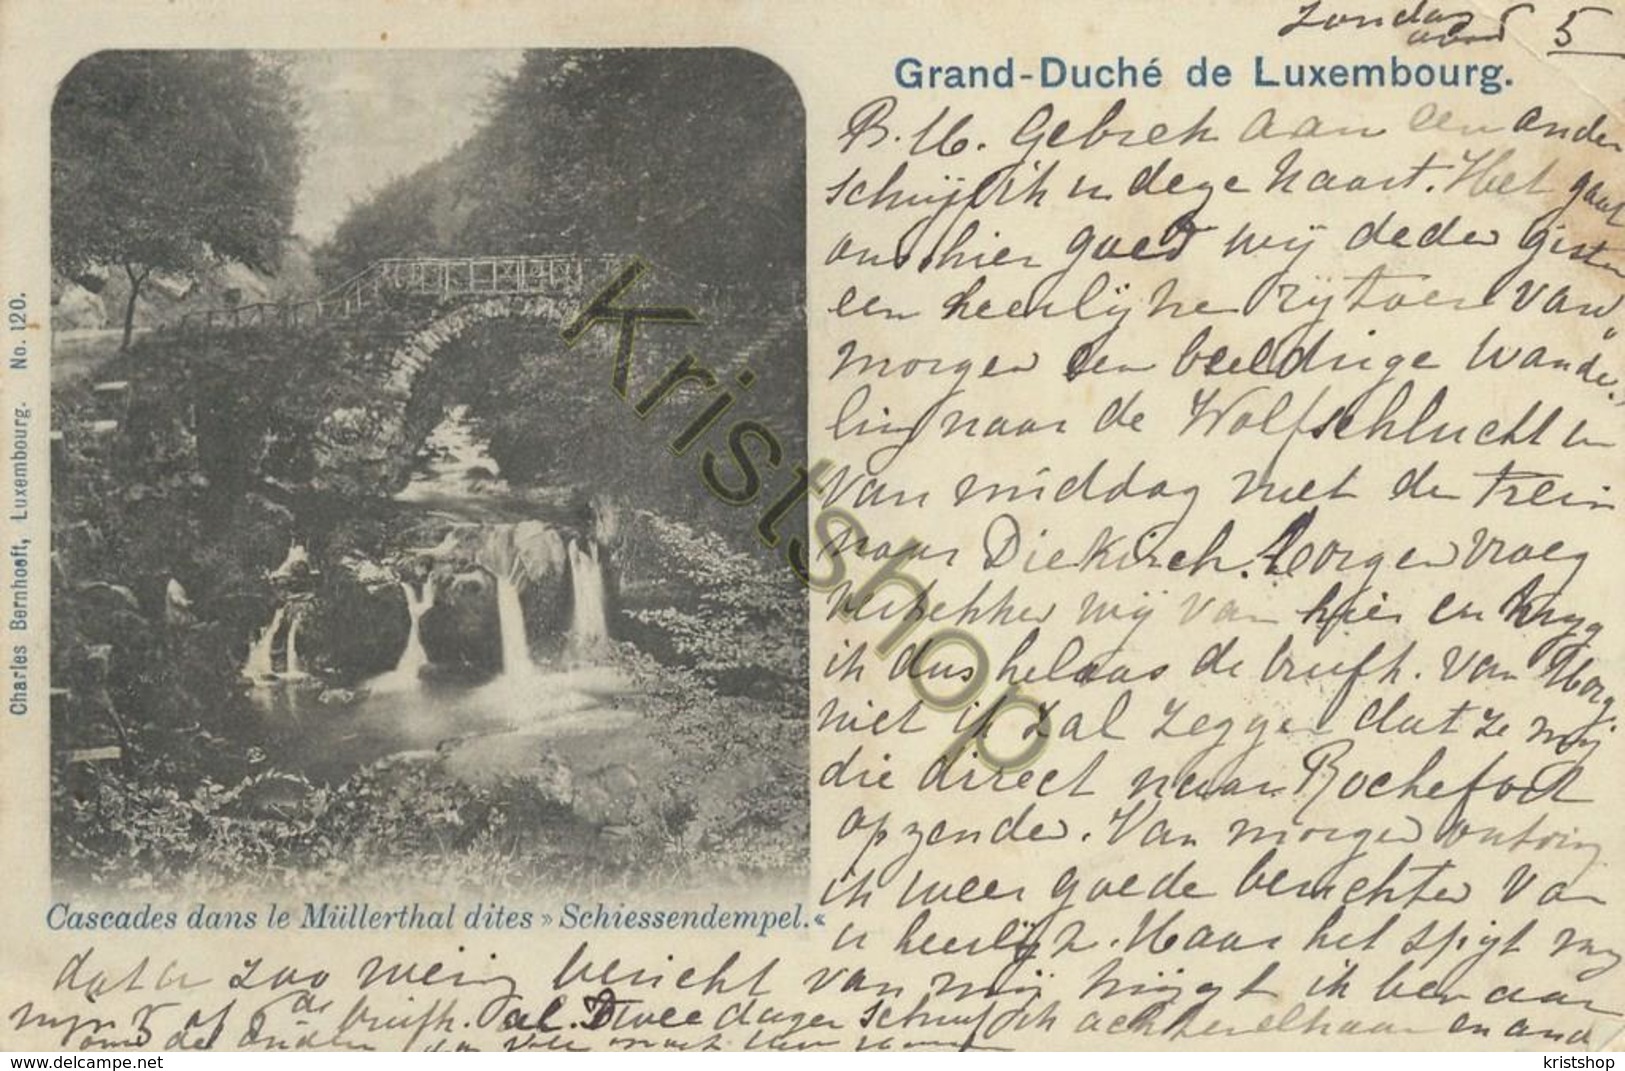 Zondag 5
avond
Grand-Duché de Luxembourg.
B. M. Gebrek aan een ander
schrijf ik u deze kaart. Het gaat
ons hier goed wij deden gister
een heerlijke rijtoer van
morgen een beeldige wande-
ling naar de Wolfschlucht en
van middag met de trein
naar Diekirch. Morgen vroeg
vertrekken wij van hier en kryg
ik dus helaas de briefk. van Morg.
niet ik zal zeggen dat ze mij
die direct naar Rochefort
opzenden. Van morgen ontving
ik weer goede berichten van
u heerlijk. Maar het spijt mij
dat u zoo weinig bericht van mij krijgt ik ben aan
mijn 5 of 6de briefk. al. Twee dagen schreef ik achterelkaar en
Cascades dans le Müllerthal dites » Schiessendempel.«
Charles Bernhoeft, Luxembourg. No. 120.
Kristshop
delcampe.net
kristshop